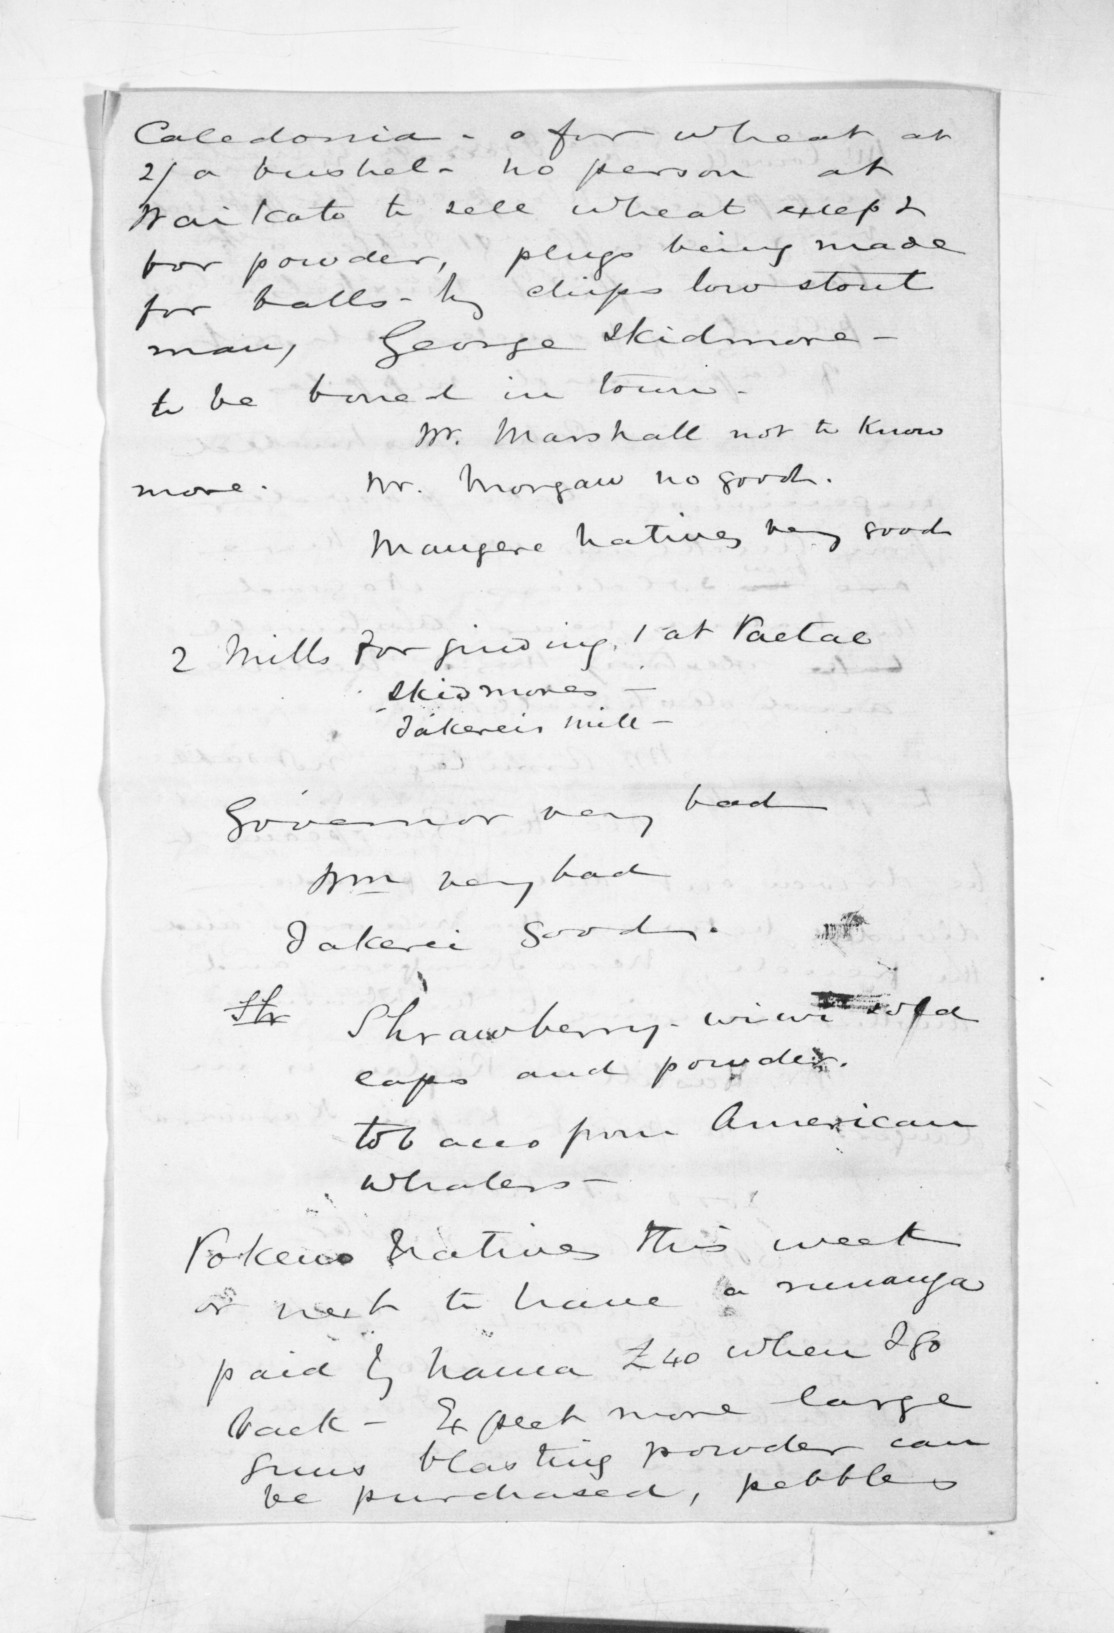 Caledonia - o for wheat at
2/ a bushel - no person at
Waikato to sell wheat except
for powder, plugs being made
for balls - by chips low stout
man, George Skidmore -
to be bored in town -
Mr. Marshall not to know
more. Mr. Morgan no good.
Mangere Natives very good
2 Mills for grinding, 1 at
Skidmores -
Takereis Mill -
Governor very bad
Wm very bad
Takerei Good.
Str Shrawberry - wiwi sold
caps and powder.
tobacco from American
whalers -
Pokeno Natives this week
or next to have a runanga
paid by £40 when I go
back - Expect more large
guns blasting powder can
be purchased, pebbles